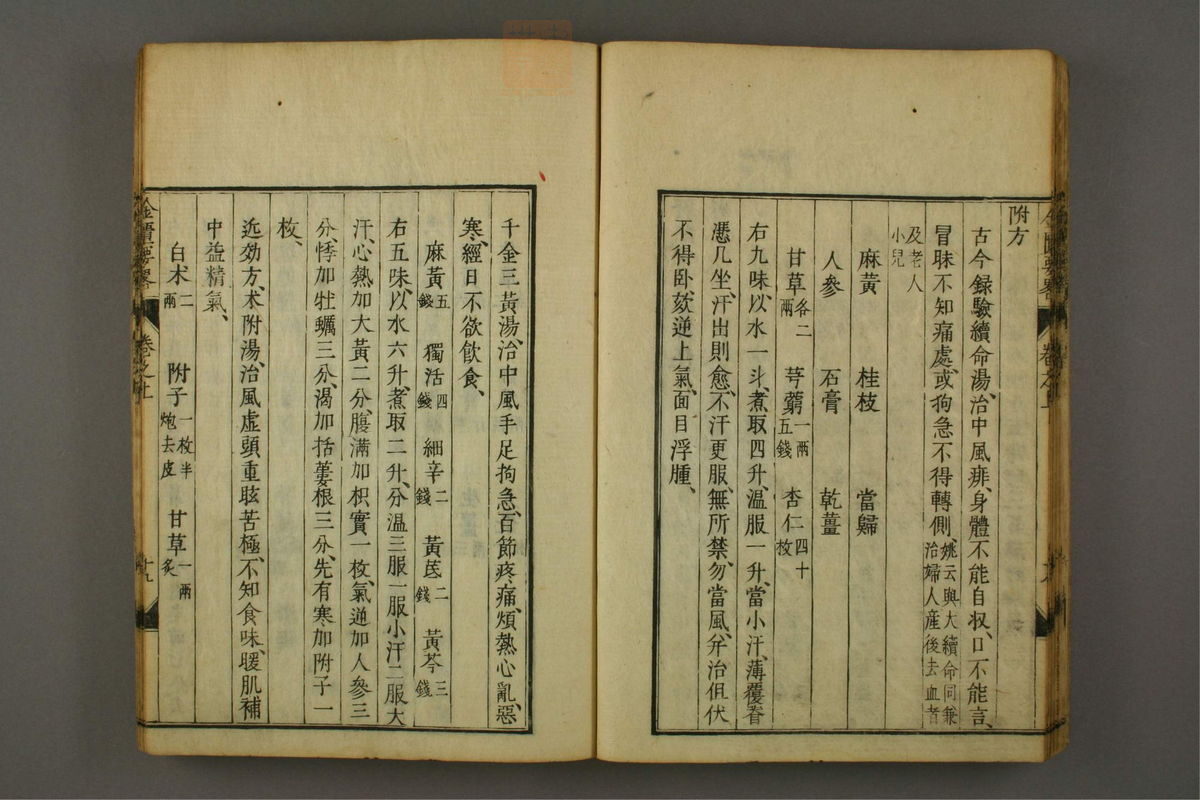 附方
古今録驗續命湯治中風痱、身體不能自収、口不能言、
冒昧不知痛處、或拘急不得轉側、姚云與大續命同兼治婦人産後去血者
及老人小兒
麻黃 桂枝 當歸
人參 石膏 乾薑
甘草各二兩 芎藭一兩五錢 杏仁四十枚
右九味以水一斗、煮取四升、温服一升、當小汗、薄覆脊
凭几坐、汗出則愈、不汗更服、無所禁、勿當風、并治但伏
不得卧、欬逆上氣、面目浮腫、
千金三黃湯、治中風手足拘急、百節疼痛、煩熱心亂、惡
寒、經日不欲飲食、
麻黃五錢 獨活四錢 細辛二錢 黃芪二錢 黃芩三錢
右五味、以水六升、煮取二升、分温三服、一服小汗二服大
汗、心熱加大黃二分、腹滿加枳實一枚、氣逆加人參三
分、悸加牡蠣三分、渴加括蔞根三分、先有寒加附子一
枚、
近効方、术附湯、治風虛頭重眩苦極、不知食味、暖肌補
中益精氣、
白术二兩 附子一枚半炮去皮 甘草一兩炙
金匱要畧 卷之上 十九